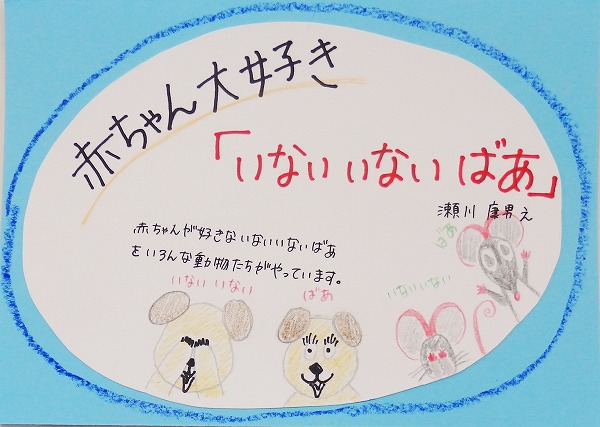 赤ちゃん大好き
「いないいないばあ」
瀬川康男え
赤ちゃんが好きないないいないばあ
をいろんな動物たちがやっています。
いないいない
ばあ
いないいない
ばあ